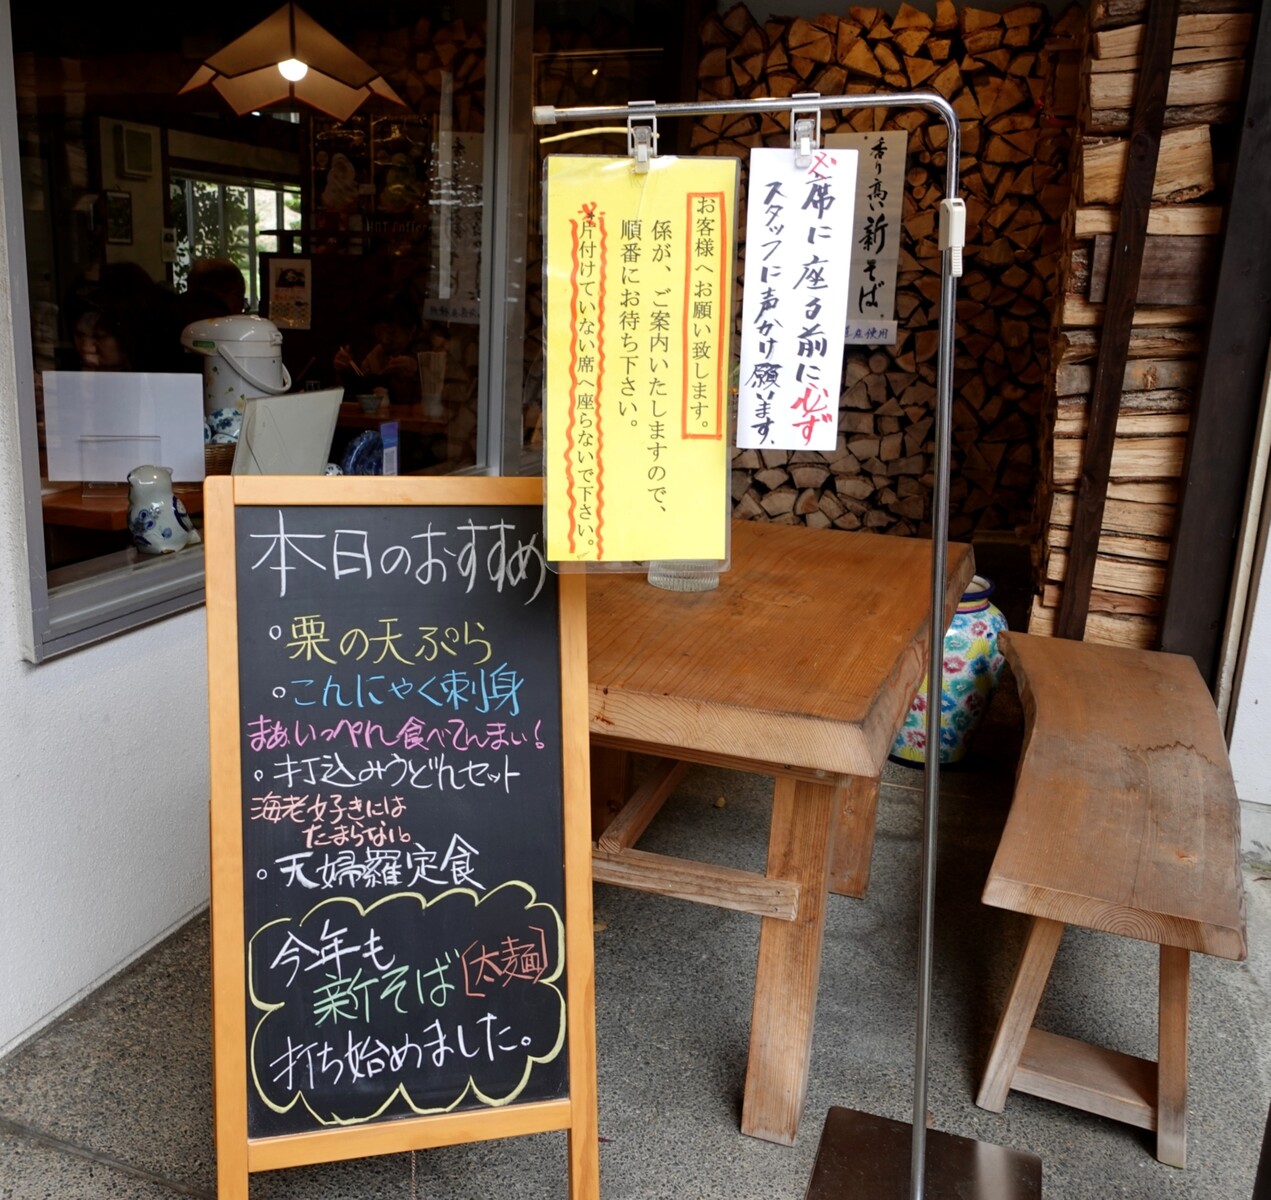 本日のおすすめ
。栗の天ぷら
。こんにゃく刺身
まぁ、いっぺん食べてんまい!
。打込みうどんセット
海老好きには
たまらない。
。天婦羅定食
今年も
新そば[太麺]
打ち始めました。
お客様へお願い致します。
係が、ご案内いたしますので、
順番にお待ち下さい。
※片付けていない席へ座らないで下さい。
※席に座る前に必ず
スタッフに声かけ願います、
香り高い新そば
産使用